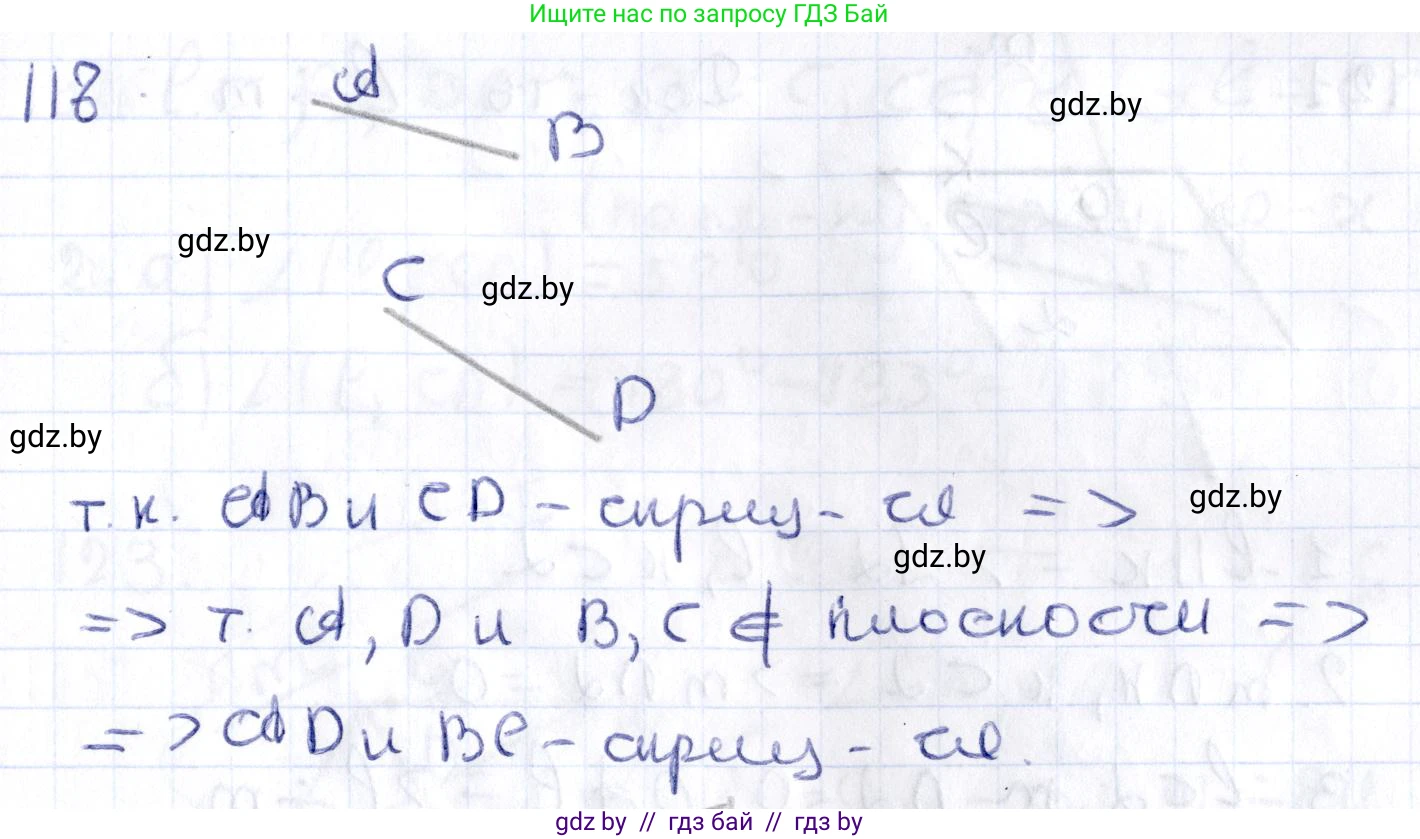 Ищите нас по запросу ГДЗ Бай
118.
A
B
gdz.by
gdz.by
C
gdz.by
D
gdz.by
т.к. AB и CD - скрещ-ся =>
gdz.by
gdz.by
=> т. A, D и B, C ∉ плоскости =>
=> AD и BC - скрещ-ся.
gdz.by // гдз бай // гдз.by